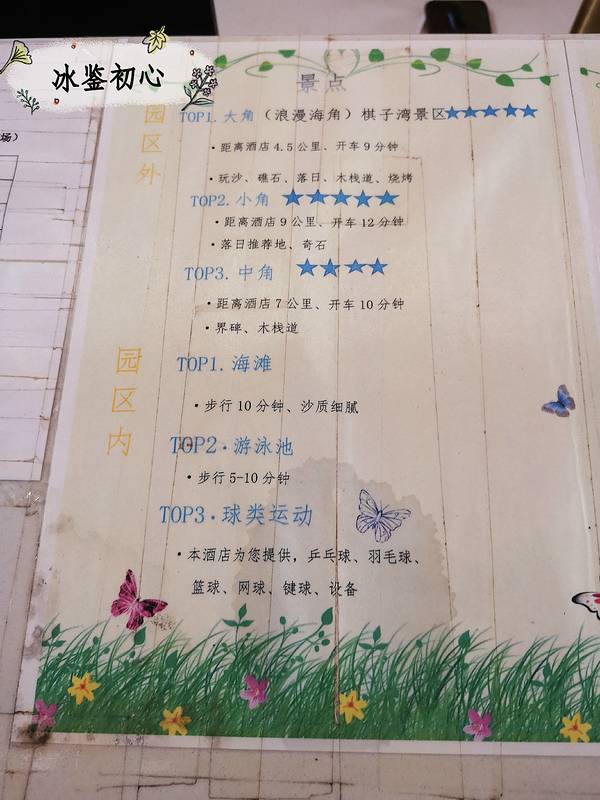 冰鉴初心
场）
景点
园区外
TOP1.大角（浪漫海角）棋子湾景区★★★★★
•距离酒店4.5公里、开车9分钟
•玩沙、礁石、落日、木栈道、烧烤
TOP2.小角 ★★★★★
•距离酒店9公里、开车12分钟
•落日推荐地、奇石
TOP3.中角 ★★★★
•距离酒店7公里、开车10分钟
•界碑、木栈道
园区内
TOP1.海滩
•步行10分钟、沙质细腻
TOP2.游泳池
•步行5-10分钟
TOP3.球类运动
•本酒店为您提供，乒乓球、羽毛球、
篮球、网球、键球、设备